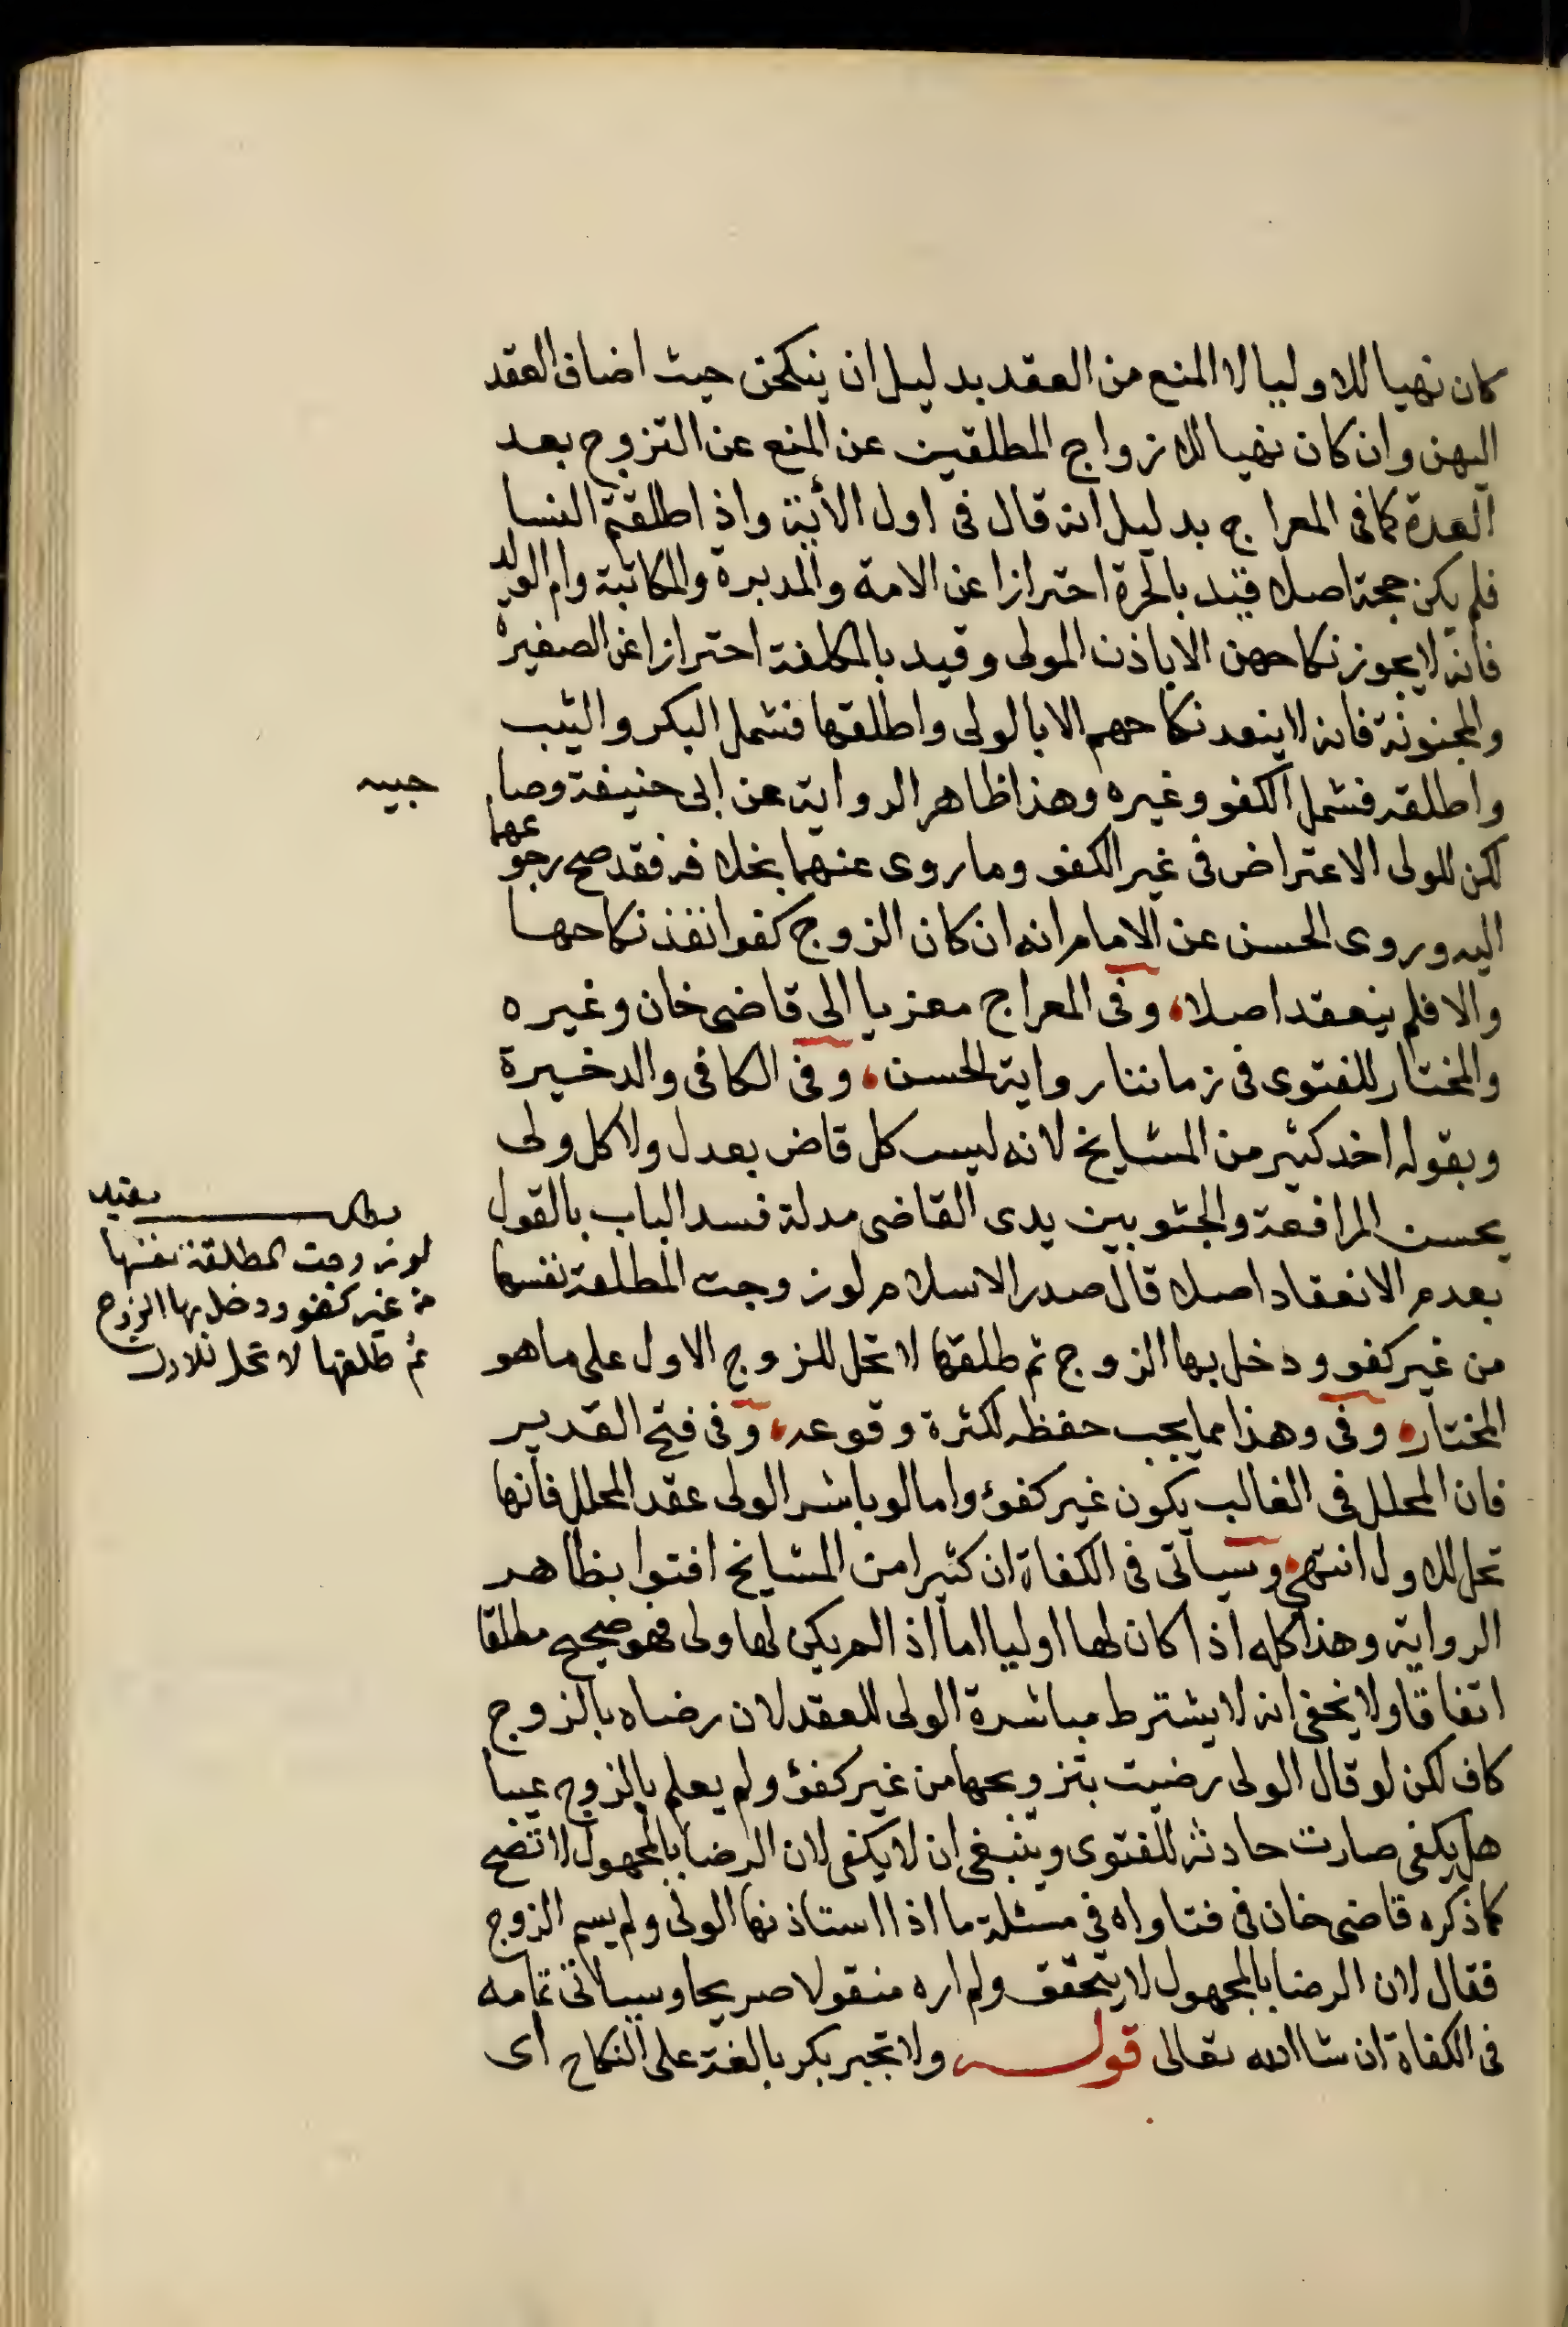 كان نهيا للاوليا لا المنع من العقد بدليل ان ينكحن حيث اضاف العقد
اليهن وان كان نهيا للازواج المطلقين عن المنع عن التزوج بعد
العدة كما فى المعراج بدليل انه قال فى اول الأية واذا طلقتم النسا
فلم يكن حجة اصلا قيد بالحرة احترازا عن الامة والمدبرة والمكاتبة وام الولد
فانه لا يجوز نكاحهن الا باذن المولى وقيد بالمكلفة احترازا عن الصغيرة
والمجنونة فانه لا ينعد نكاحهم الا بالولى واطلقها فشمل البكر والثيب
واطلقه فشمل الكفو وغيره وهذا ظاهر الرواية عن ابى حنيفة وصا
حبيه
لكن للولى الاعتراض فى غير الكفو وما روى عنهما بخلافه فقد صح رجوعهما
اليه وروى الحسن عن الامام انه ان كان الزوج كفوا نفذ نكاحها
والا فلم ينعقد اصلا، وفى المعراج معزيا الى قاضى خان وغيره
والمختار للفتوى فى زماننا رواية الحسن، وفى الكافى والدخيرة
وبقوله اخد كثير من المشايخ لانه ليس كل قاض بعدل ولا كل ولى
يحسن المرافعة والجثو بين يدى القاضى مدلة فسد الباب بالقول
بعدم الانعقاد اصلا قال صدر الاسلام لو زوجت المطلقة نفسها
من غير كفو ودخل بها الزوج ثم طلقها لا تحل للزوج الاول على ما هو
المختار، وفى وهذا مما يجب حفظه لكثرة وقوعه، وفى فتح القدير
فان المحلل فى الغالب يكون غير كفؤ واما لو باشر الولى عقد المحلل فانها
تحل للاول انتهى، وسيأتى فى الكفاة ان كثيرا من المشايخ افتوا بظاهر
الرواية وهذا كله اذا كان لها اوليا اما اذا لم يكن لها ولى فهو صحيح مطلقا
اتفاقا ولا يخفى انه لا يشترط مباشرة الولى للعقد لان رضاه بالزوج
كاف لكن لو قال الولى رضيت بتزوجها من غير كفؤ ولم يعلم بالزوج عينا
هل يكفى صارت حادثة للفتوى وينبغى ان لا يكفى لان الرضا بالمجهول لا تصح
كما ذكره قاضى خان فى فتاواه فى مسئلة ما اذا استاذنها الولى ولم يسم الزوج
فقال لان الرضا بالمجهول لا يتحقق ولم اره منقولا صريحا وسيأتى تمامه
فى الكفاة ان شا الله تعالى قوله ولا تجبر بكر بالغة على النكاح أى
لو زوجت المطلقة نفسها
من غير كفو ودخل بها الزوج
ثم طلقها لا تحل للاول